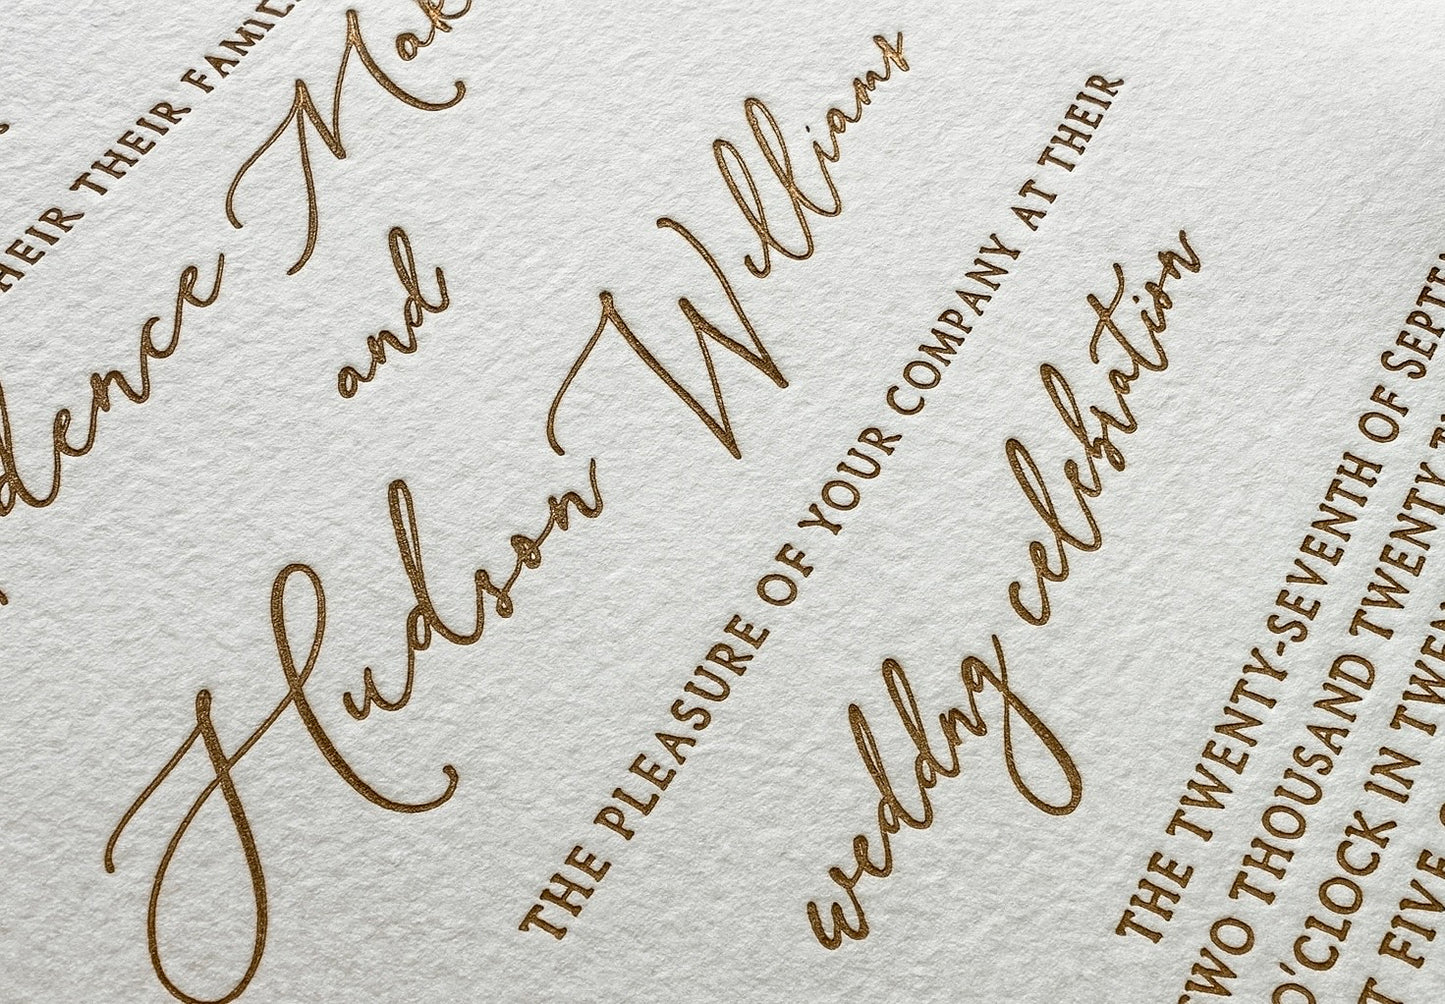 HEIR THEIR FAMIL
dence Mak
and
Hudson Williams
THE PLEASURE OF YOUR COMPANY AT THEIR
weddng celebration
THE TWENTY-SEVENTH OF SEPTE
TWO THOUSAND TWENTY T
O'CLOCK IN TWEN
T FIVE